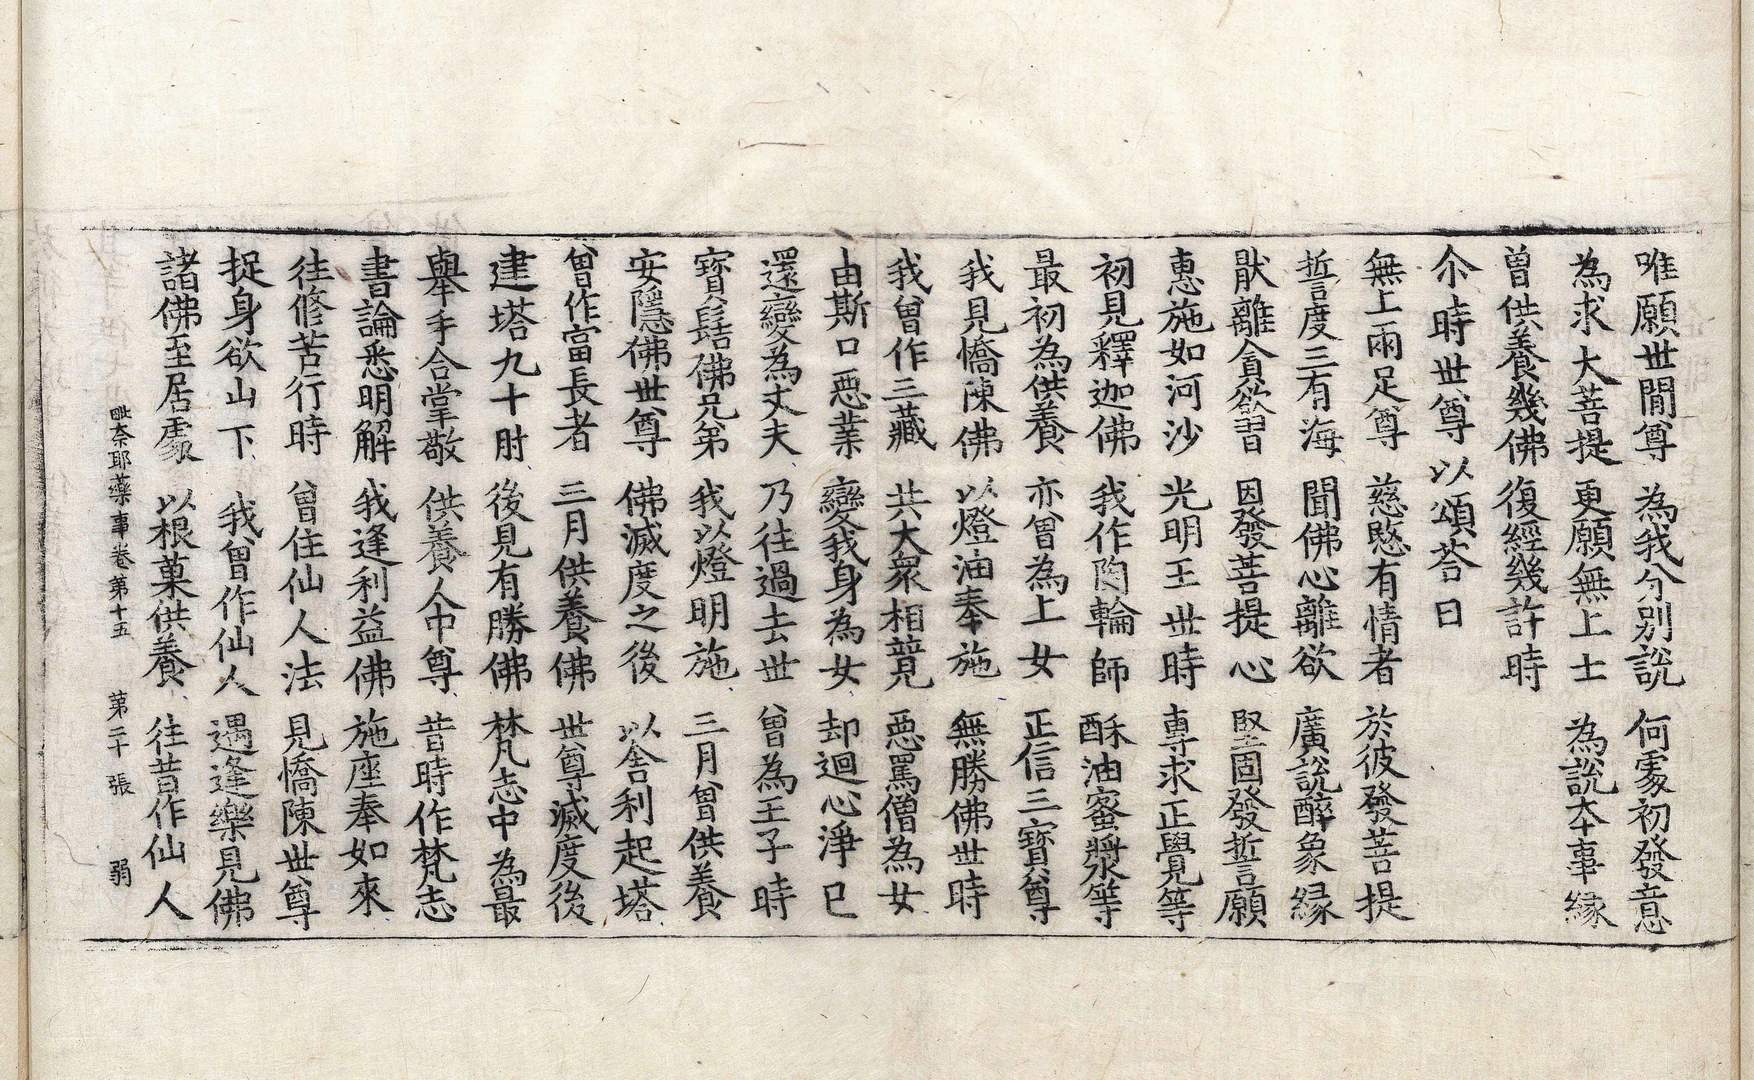 唯願世間尊 為我分別說 何處初發意
為求大菩提 更願無上士 為說本事緣
曾供養幾佛 復經幾許時
尒時世尊以頌荅曰
無上兩足尊 慈愍有情者 於彼發菩提
誓度三有海 聞佛心離欲 廣說醉象緣
猒離貪欲習 因發菩提心 堅固發誓願
惠施如河沙 光明王世時 專求正覺等
初見釋迦佛 我作陶輪師 酥油蜜漿等
最初為供養 亦曾為上女 正信三寶尊
我見憍陳佛 以燈油奉施 無勝佛世時
我曾作三藏 共大衆相競 惡罵僧為女
由斯口惡業 變我身為女 却迴心淨已
還變為丈夫 乃往過去世 曾為王子時
寶髻佛兄弟 我以燈明施 三月曾供養
安隱佛世尊 佛滅度之後 以舍利起塔
曾作富長者 三月供養佛 世尊滅度後
建塔九十肘 後見有勝佛 梵志中為最
舉手合掌敬 供養人中尊 昔時作梵志
書論悉明解 我逢利益佛 施座奉如來
往修苦行時 曾住仙人法 見憍陳世尊
捉身欲山下 我曾作仙人 遇逢樂見佛
諸佛至居處 以根菓供養 往昔作仙人
毗奈耶藥事卷第十五 第二十張 弱